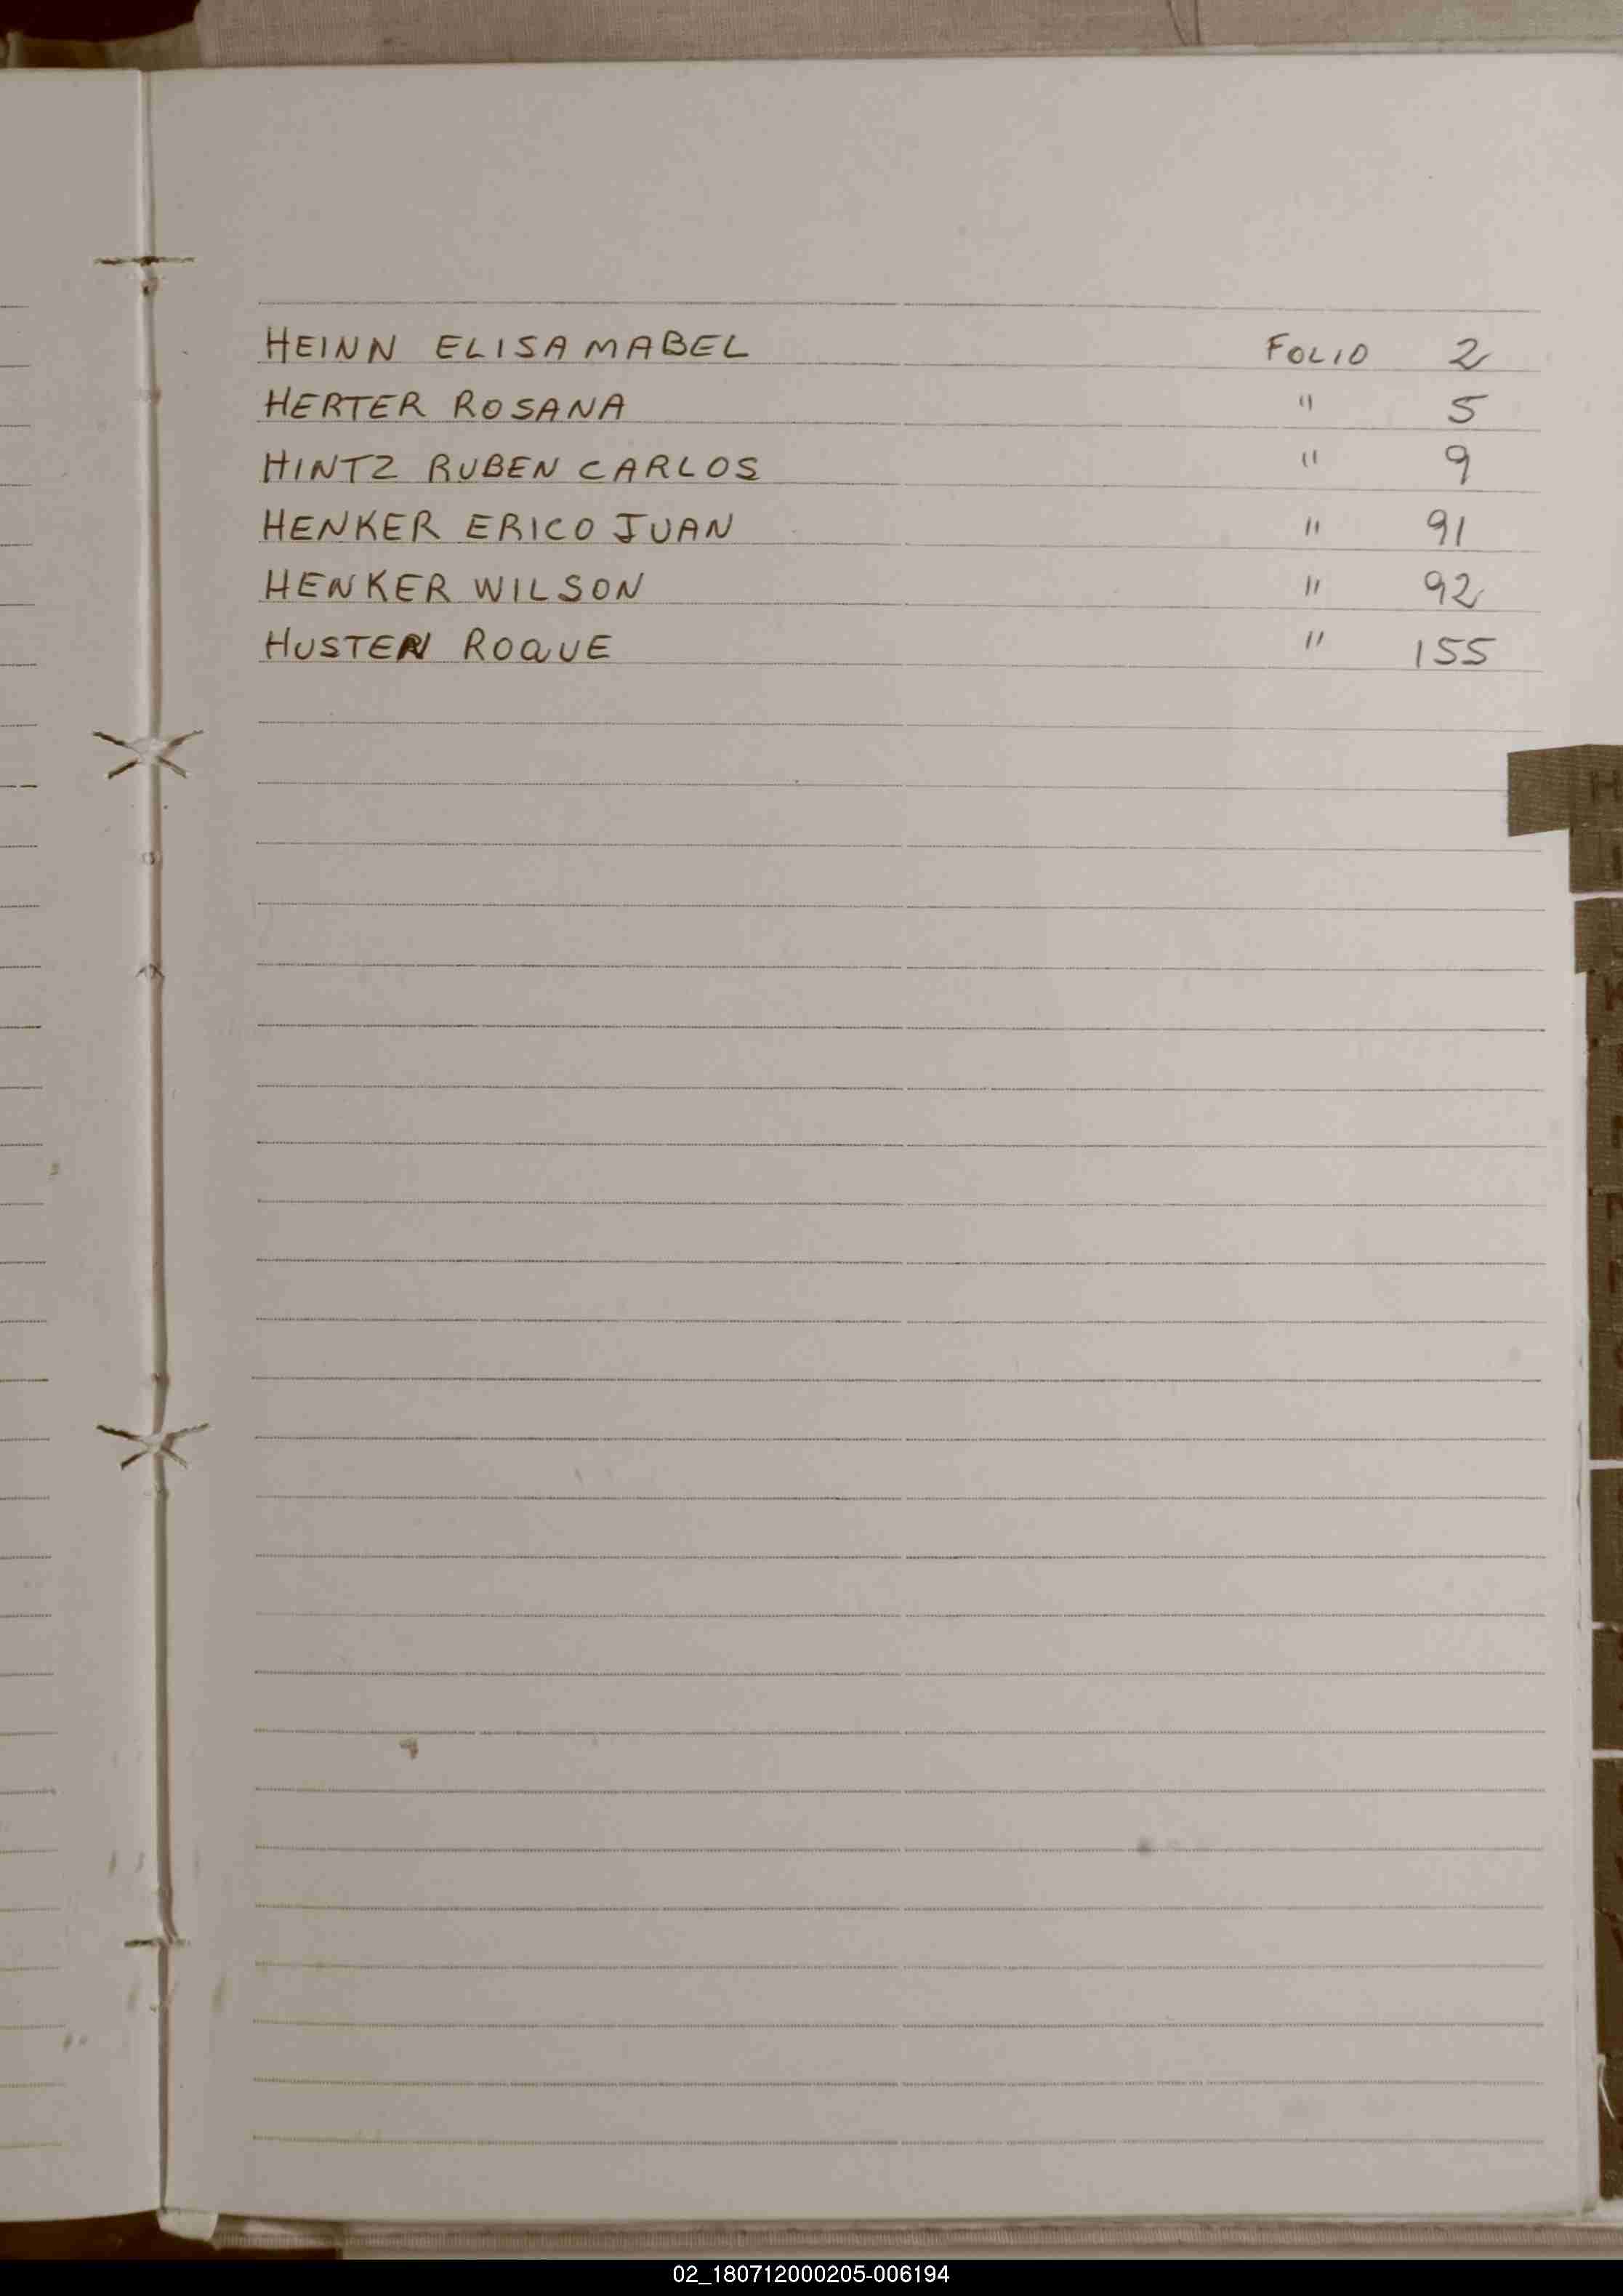 HEINN ELISA MABEL FOLIO 2
HERTER ROSANA " 5
HINTZ RUBEN CARLOS " 9
HENKER ERICO JUAN " 91
HENKER WILSON " 92
ROQUE " 155
H
K
02_180712000205-006194